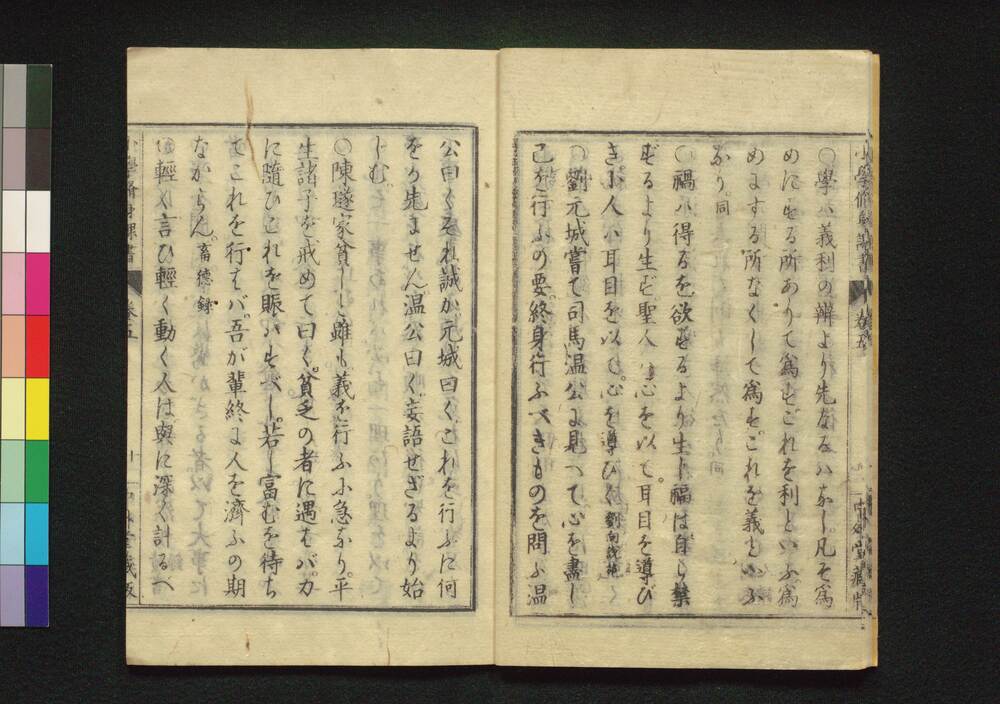 小學修身課書 卷五
○學ハ義利の辨より先なるハなし。凡そ爲
めにする所ありて爲す。これを利といふ。爲
めにする所なくして爲す。これを義といふ
なり。同
○禍ハ得るを欲するより生じ福は自ら禁
ずるより生ず。聖人ハ心を以て。耳目を導び
き小人ハ耳目を以て。心を導びく。劉向説苑
○劉元城嘗て司馬溫公に見へて心を盡し
己を行ふの要。終身行ふべきものを問ふ溫
公曰くそれ誠か元城曰くこれを行ふに何
をか先ません。溫公曰く。妄語せざるより始
じむ。
○陳遂家貧しと雖も義を行ふに急なり。平
生諸子を戒めて曰く。貧乏の者に遇はバ。力
に隨ひこれを賑ハすべし。若し富むを待ち
てこれを行はバ。吾が輩終に人を濟ふの期
ながらん。畜德錄
○輕く言ひ輕く動く人は。與に深く計るべ
小學修身課書 卷五